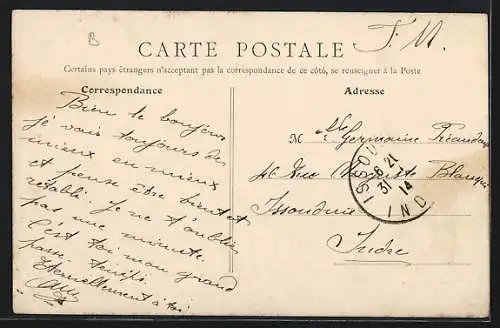 B
CARTE POSTALE
F. M.
Certains pays étrangers n'acceptant pas la correspondance de ce côté, se renseigner à la Poste
Correspondance
Bien le bonjour
je vais toujours de
mieux en mieux
et pense être bientôt
rétabli. Je ne t'oublie
pas une minute.
C'est toi mon grand
passe temps.
Eternellement à toi
Adresse
M elle Germaine
46 Rue Blanqui
Issoudun
Indre
ISSOU
8 21
31
14
IND